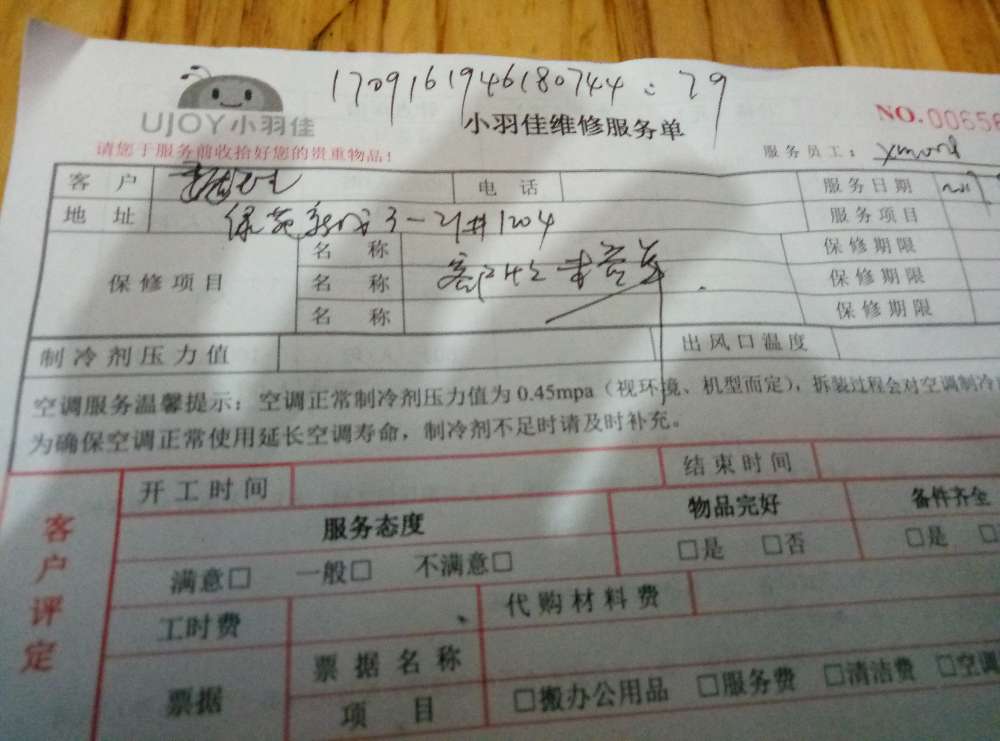 1709161946180744:79
UJOY小羽佳
小羽佳维修服务单
NO.00656
请您于服务前收拾好您的贵重物品!
服务员工:
客 户 电 话 服务日期
地 址 绿苑新城3-21#1204 服务项目
保修项目 名 称 保修期限
名 称 保修期限
名 称 保修期限
制冷剂压力值 出风口温度
空调服务温馨提示:空调正常制冷剂压力值为0.45mpa(视环境、机型而定),拆装过程会对空调制冷
为确保空调正常使用延长空调寿命,制冷剂不足时请及时补充。
客户评定
开工时间 结束时间
服务态度 物品完好 备件齐全
满意□ 一般□ 不满意□ □是 □否 □是 □
工时费 代购材料费
票据 票据名称
项 目 □搬办公用品 □服务费 □清洁费 □空调